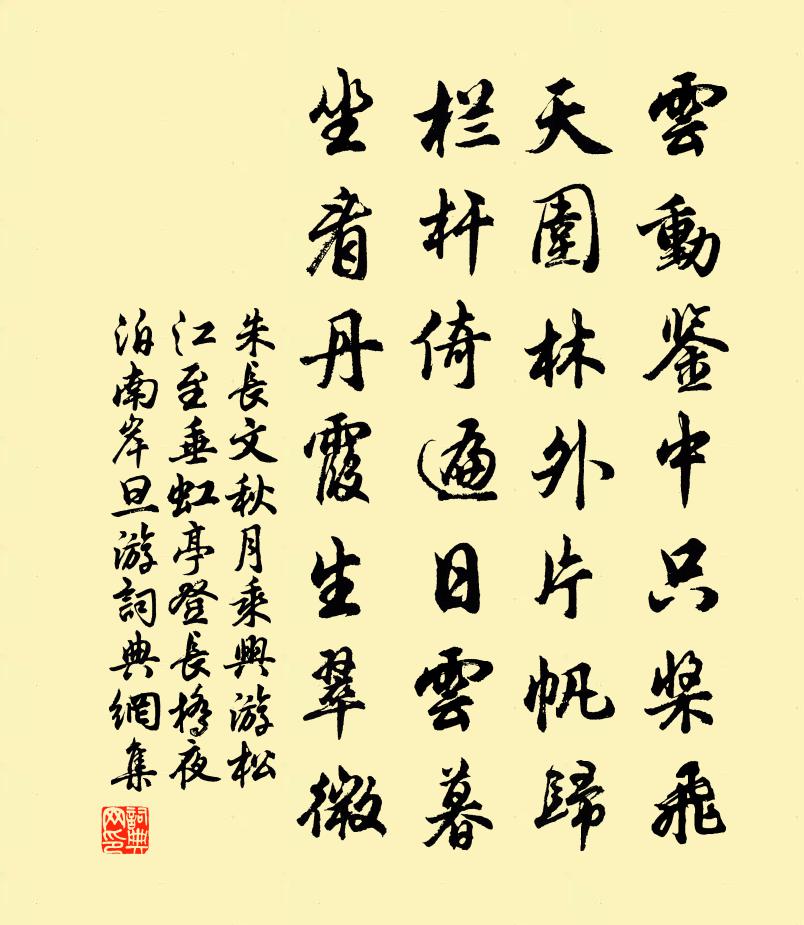 雲動鉴中只桨飛
天圍林外片帆歸
栏杆倚遍日雲暮
坐看丹霞生翠微
朱長文秋月乘興游松
江至垂虹亭登長橋夜
泊南岸旦游詞典網集
詞典网印